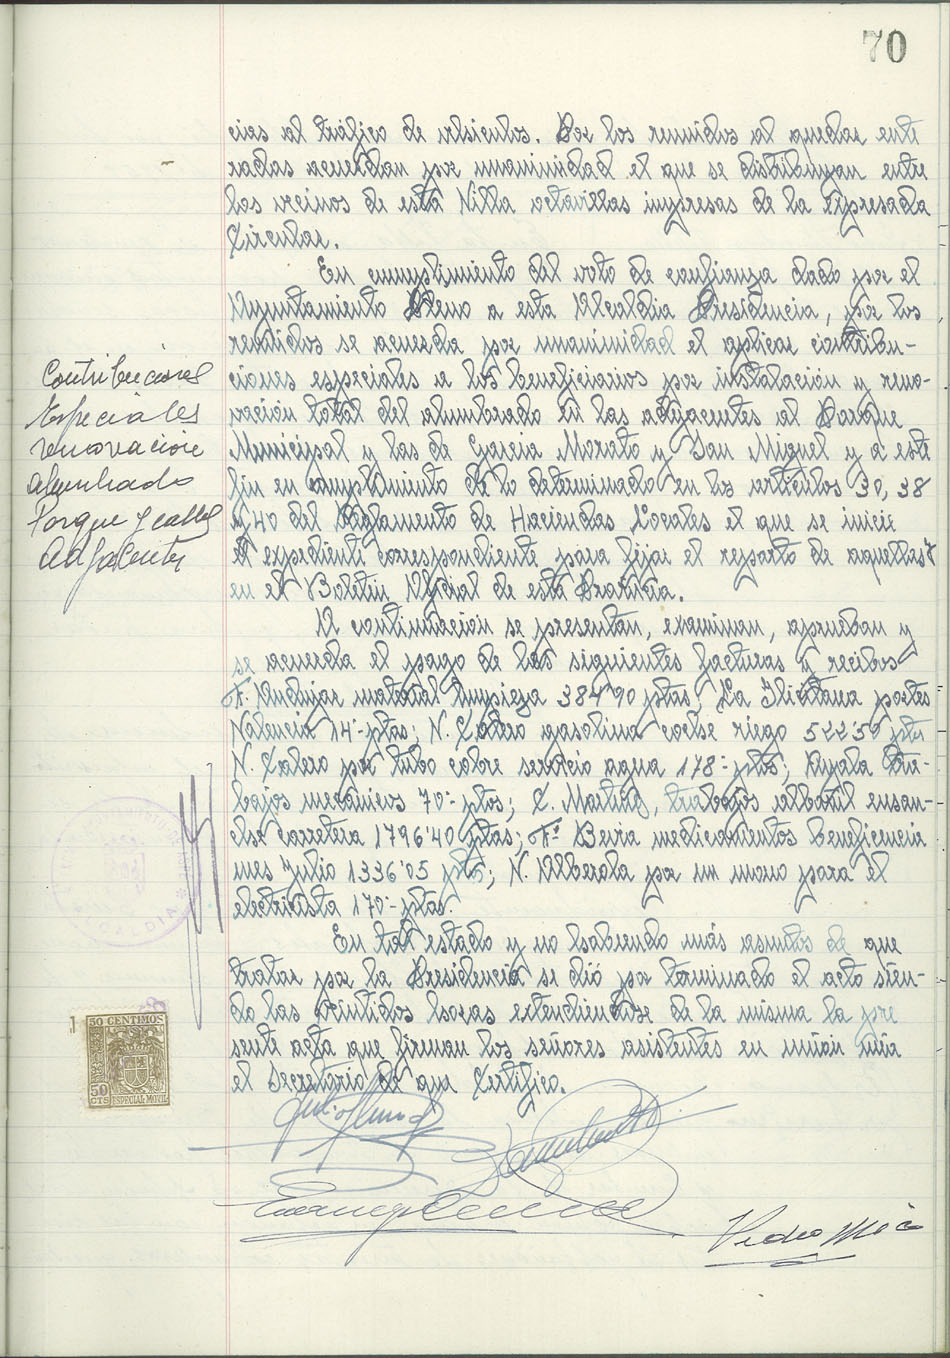 70
cias al tráfico de vehiculos. Por los reunidos al quedar ente
radas acuerdan por unanimidad el que se distribuyan entre
los vecinos de esta Villa octavillas impresas de la expresada
Circular.
En cumplimiento del voto de confianza dado por el
Ayuntamiento Pleno a esta Alcaldia Presidencia, por los
reunidos se acuerda por unanimidad el aplicar contribu-
ciones especiales a los beneficiarios por instalación y reno-
vación total del alumbrado en las adyacentes al Parque
Municipal y las de Garcia Morato y San Miguel y a este
fin en cumplimiento de lo determinado en los articulos 30, 38
y 40 del Reglamento de Haciendas Locales el que se inicie
el expediente correspondiente para fijar el reparto de aquellas
en el Boletin Oficial de esta Provincia.
Contribuciones
Especiales
renovación
alumbrado
Parque y calles
Adyacentes
A continuación se presentan, examinan, aprueban y
se acuerda el pago de las siguientes facturas y recibos
F. Andujar material limpieza 384'90 ptas; La Ilicitana portes
Valencia 14'- ptas; N. Calero gasolina coche riego 522'50 ptas
N. Calero por tubo cobre servicio agua 178'- ptas; Ayala tra-
bajos mecánicos 70'- ptas; C. Martinez, trabajos albañil ensan-
che carretera 1796'40 ptas; Fª Bevia medicamentos beneficencia
mes Julio 1336'05 ptas; N. Alberola por un mono para el
electricista 170'- ptas.
En tal estado y no habiendo más asuntos de que
tratar por la Presidencia se dió por terminado el acto sien-
do las veintidos horas extendiendose de la misma la pre
sente acta que firman los señores asistentes en unión mia
el Secretario de que Certifico.
50 CENTIMOS
50
CTS
ESPECIAL MOVIL
ALCALDIA
Pedro Micó